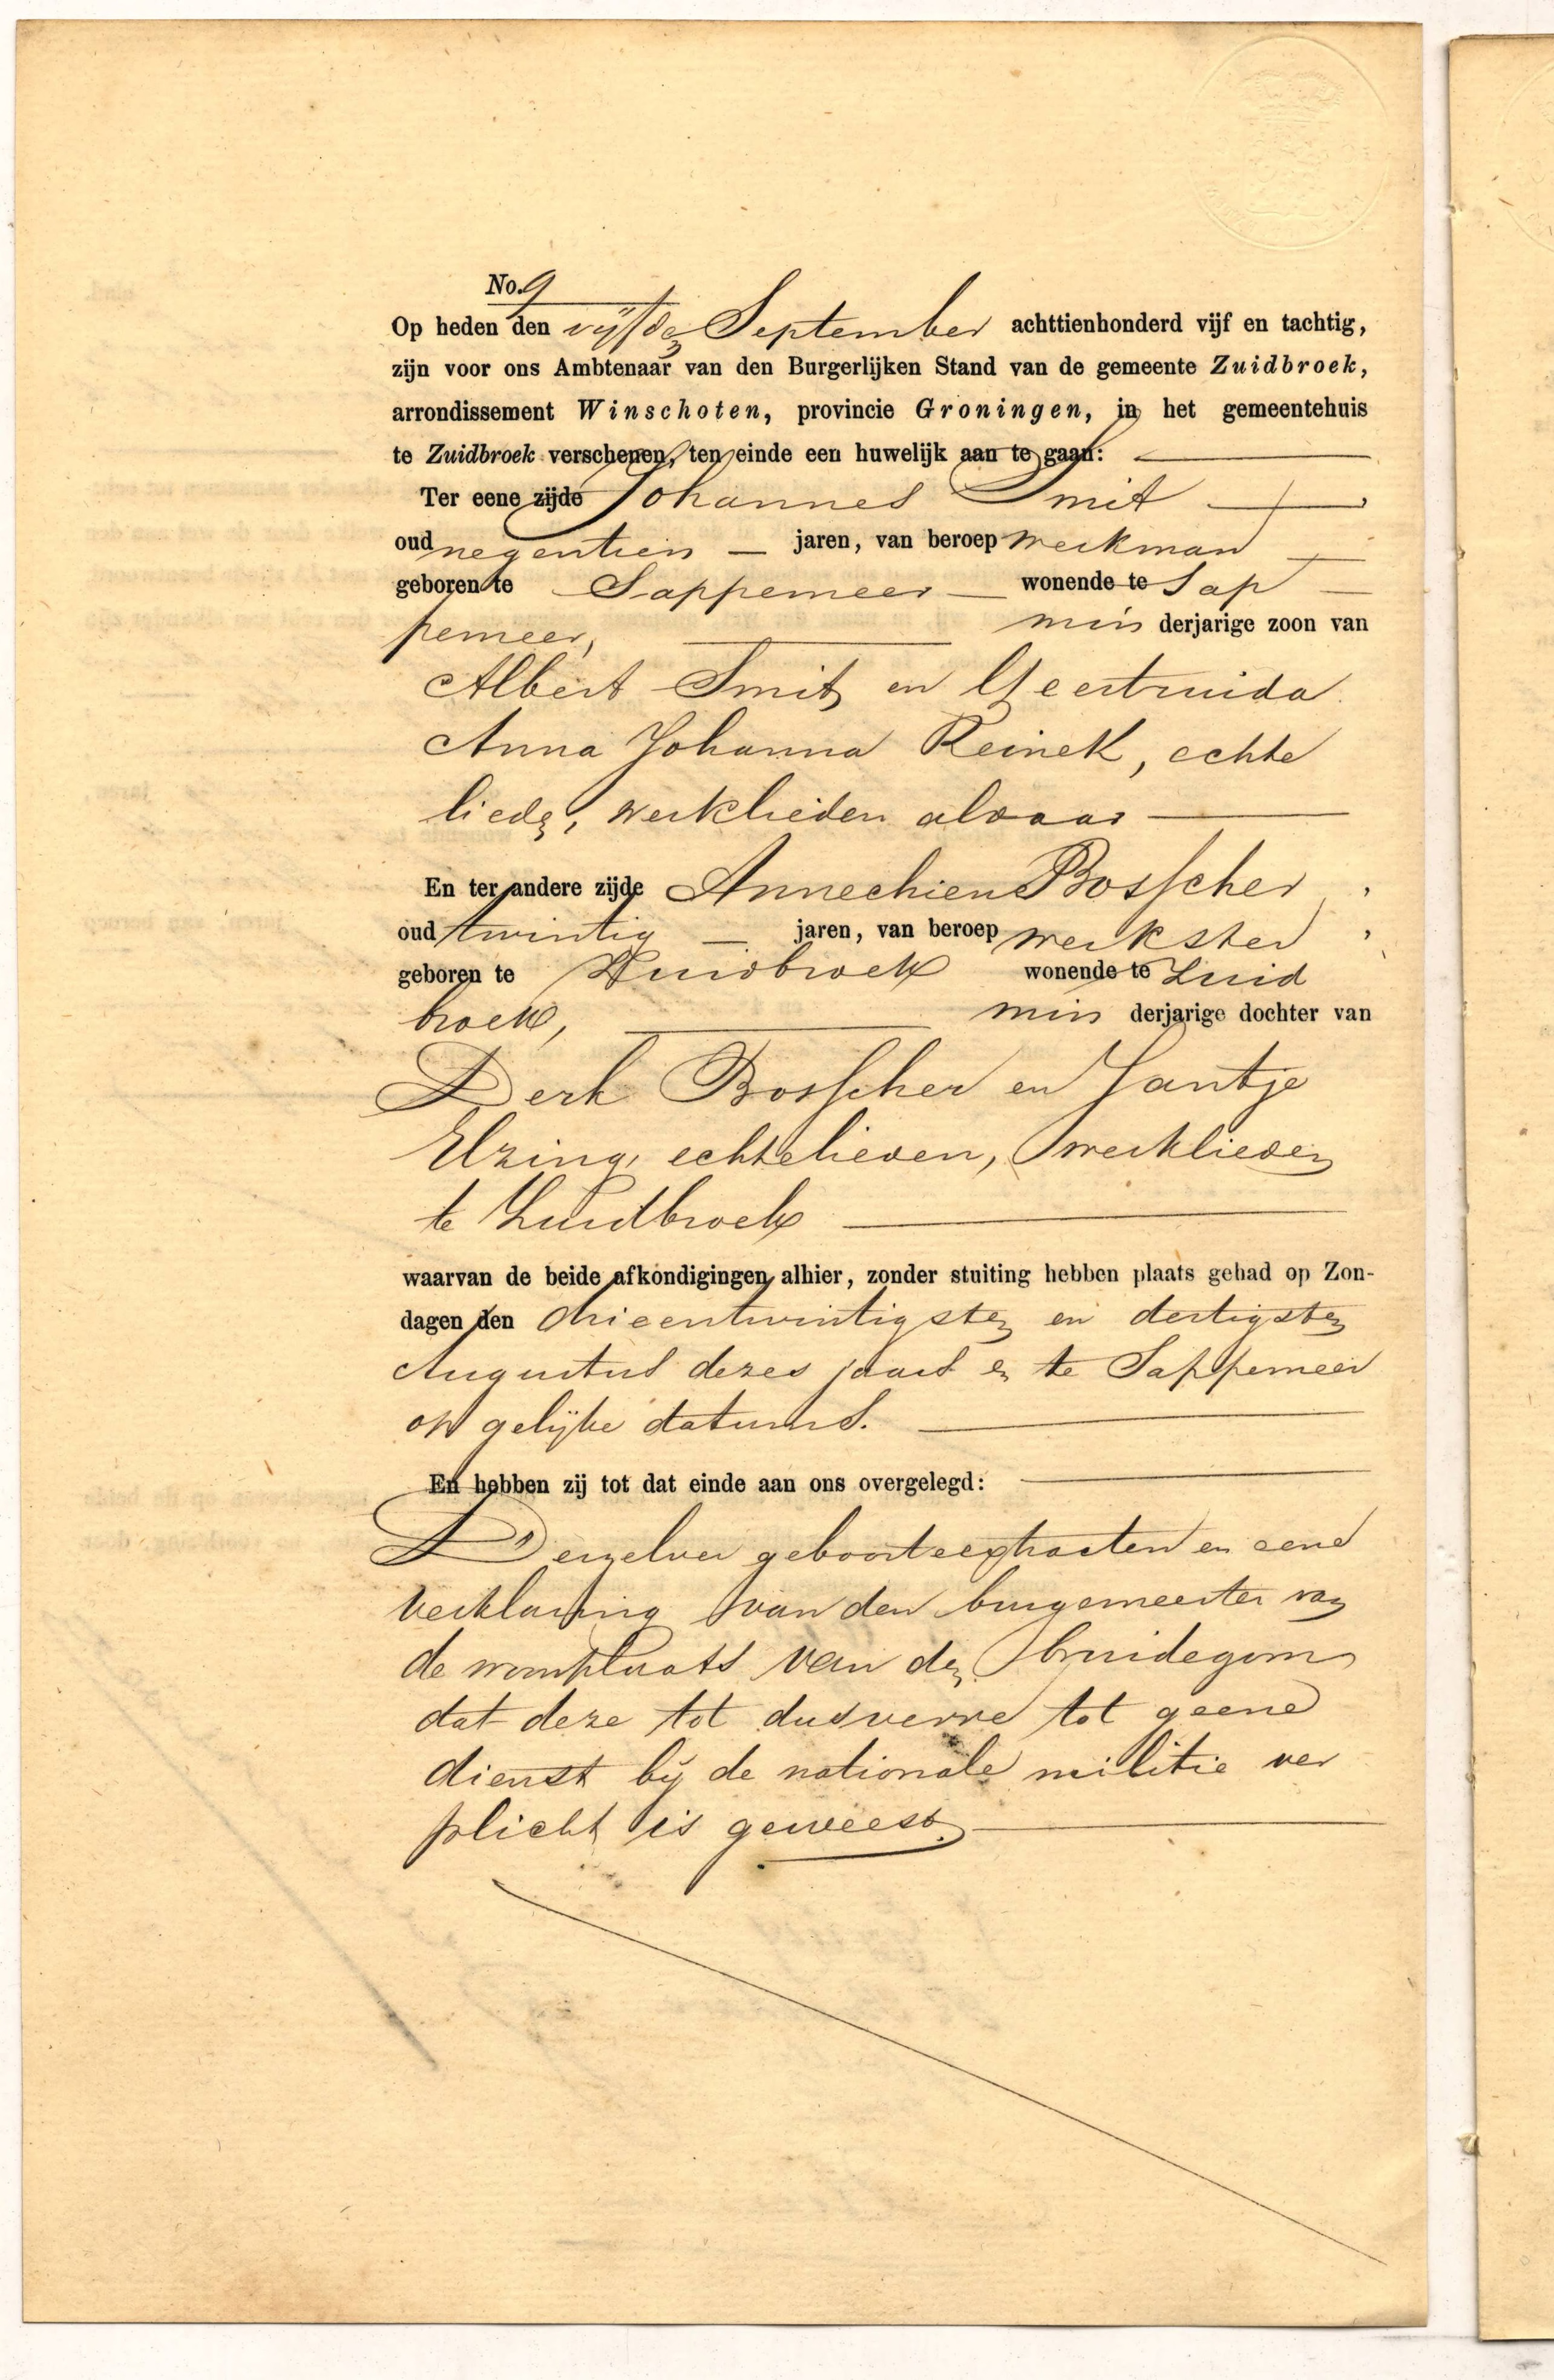 No. 9
Op heden den vijfden September achttienhonderd vijf en tachtig,
zijn voor ons Ambtenaar van den Burgerlijken Stand van de gemeente Zuidbroek,
arrondissement Winschoten, provincie Groningen, in het gemeentehuis
te Zuidbroek verschenen, ten einde een huwelijk aan te gaan:
Ter eene zijde Johannes Smit
oud negentien jaren, van beroep werkman
geboren te Sappemeer wonende te Sap
pemeer, min derjarige zoon van
Albert Smit en Geertruida
Anna Johanna Reinek, echte
lieden, werklieden aldaar
En ter andere zijde Annechien Bosscher,
oud twintig jaren, van beroep werkster,
geboren te Zuidbroek wonende te Zuid
broek, min derjarige dochter van
Derk Bosscher en Jantje
Elzing, echtelieden, werklieden
te Zuidbroek
waarvan de beide afkondigingen alhier, zonder stuiting hebben plaats gehad op Zon-
dagen den drieentwintigsten en dertigsten
Augustus dezes jaars en te Sappemeer
op gelijke datums.
En hebben zij tot dat einde aan ons overgelegd:
Derzelver geboorteextracten en eene
verklaring van den burgemeester van
de woonplaats van den bruidegom
dat deze tot dusverre tot geene
dienst bij de nationale militie ver
plicht is geweest.